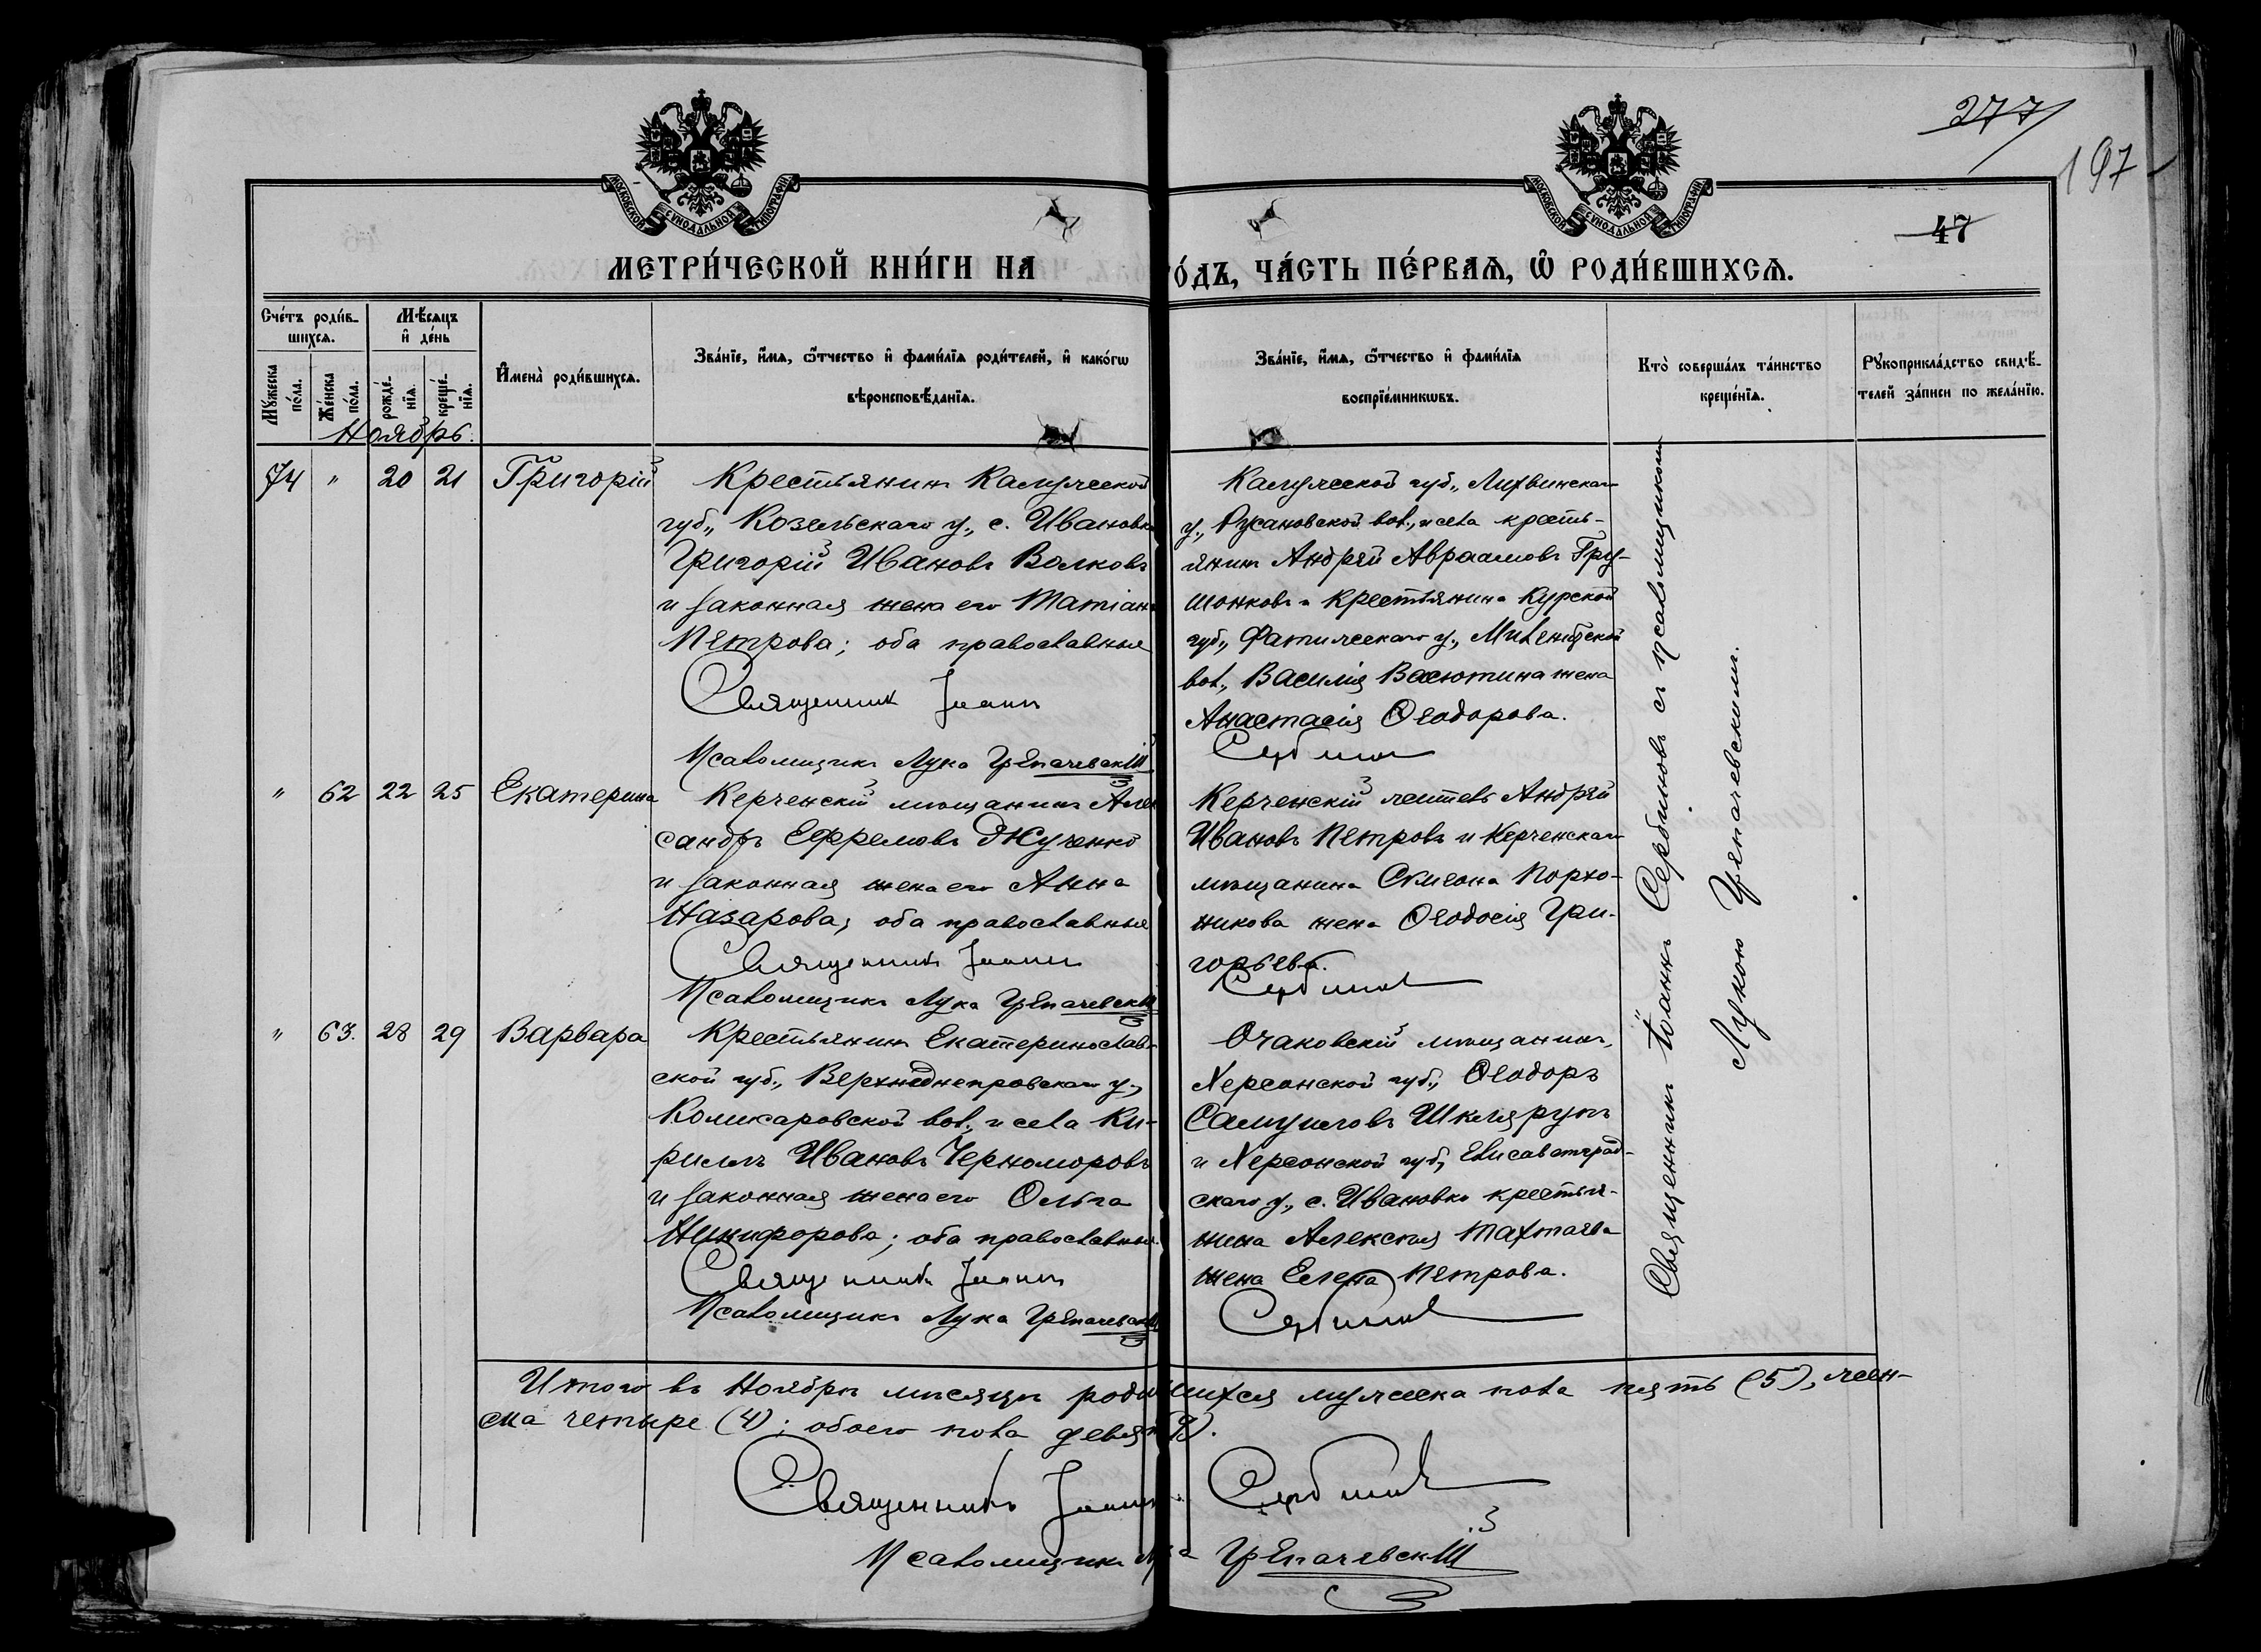 277
197
47
МОСКОВСКОЙ СѴНОДАЛЬНОЙ ТИПОГРАФІИ
МОСКОВСКОЙ СѴНОДАЛЬНОЙ ТИПОГРАФІИ
МЕТРИ́ЧЕСКОЙ КНИ́ГИ НА
ГО́ДЪ, ЧА́СТЬ ПЕ́РВАѦ, Ѿ РОДИ́ВШИХСѦ.
Сче́тъ роди́в-
шихсѧ.
Мꙋ́жеска
по́ла.
Же́нска
по́ла.
Мѣ́сѧцъ
и҆ де́нь
рожде́-
нїѧ.
креще́-
нїѧ.
И҆мена̀ роди́вшихсѧ.
Зва́нїе, и҆́мѧ, ѻ҆́тчество и҆ фами́лїѧ роди́телей, и҆ како́гѡ
вѣроисповѣ́данїѧ.
Зва́нїе, и҆́мѧ, ѻ҆́тчество и҆ фами́лїѧ
воспрїе́мникѡвъ.
Кто̀ соверша́лъ та́инство
креще́нїѧ.
Рꙋкоприкла́дство свидѣ́-
телей за́писи по жела́нїю.
Ноябрь.
74 " 20 21 Григорій
Крестьянинъ Калужской
губ., Козельскаго у., с. Ивановки
Григорій Ивановъ Волковъ
и законная жена его Татіана
Петрова; оба православные
Священникъ Іоаннъ
Псаломщикъ Лука Црепачевскій
Калужской губ., Лихвинскаго
у., Русановской вол., и села кресть-
янинъ Андрей Авраамовъ Гру-
шонковъ и крестьянина Курской
губ., Фатижскаго у.,
вол., Василія Васютина жена
Анастасія Ѳеодорова.
Сербиновъ
" 62 22 25 Екатерина
Керченскій мѣщанинъ Алек
сандръ Ефремовъ Жученко
и законная жена его Анна
Назарова; оба православные
Священникъ Іоаннъ
Псаломщикъ Лука Црепачевскій
Керченскій житель Андрей
Ивановъ Петровъ и Керченскаго
мѣщанина Симеона Порхо-
никова жена Ѳеодосія Гри-
горьева.
Сербиновъ
" 63. 28 29 Варвара
Крестьянинъ Екатеринослав-
ской губ., Верхнеднепровскаго у.,
Комисаровской вол., и села Ки-
риллъ Ивановъ Черноморовъ
и законная жена его Ольга
Никифорова; оба православные.
Священникъ Іоаннъ
Псаломщикъ Лука Црепачевскій
Очаковскій мѣщанинъ,
Херсонской губ., Ѳеодоръ
Самуиловъ Шкляръ
и Херсонской губ., Елисаветград-
скаго у., с. Ивановки крестья-
нина Алексѣя Тахтаева
жена Елена Петрова.
Сербиновъ
Священникъ Іоаннъ Сербиновъ съ псаломщикомъ
Лукою Црепачевскимъ.
Итого въ Ноябрѣ мѣсяцѣ родившихся мужеска пола пять (5), жен-
ска четыре (4); обоего пола девять (9).
Священникъ Іоаннъ Сербиновъ
Псаломщикъ Лука Црепачевскій